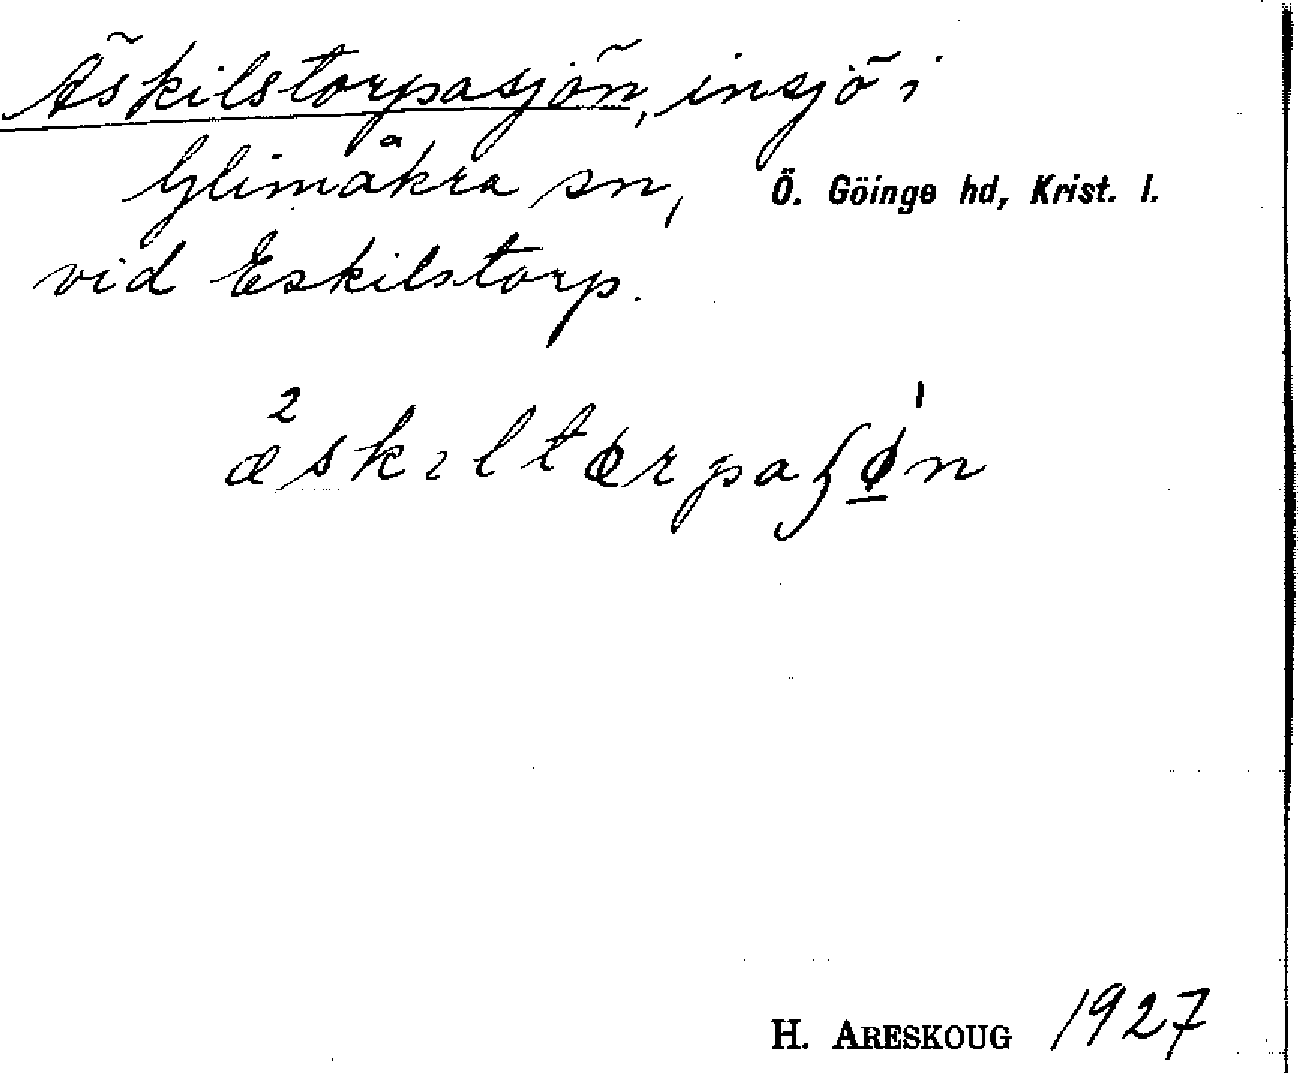 Äskilstorpasjön, insjö i
Glimåkra sn, Ö. Göinge hd, Krist. l.
vid Eskilstorp.
æ²skıltɵrpaʃø̱¹n
H. ARESKOUG 1927